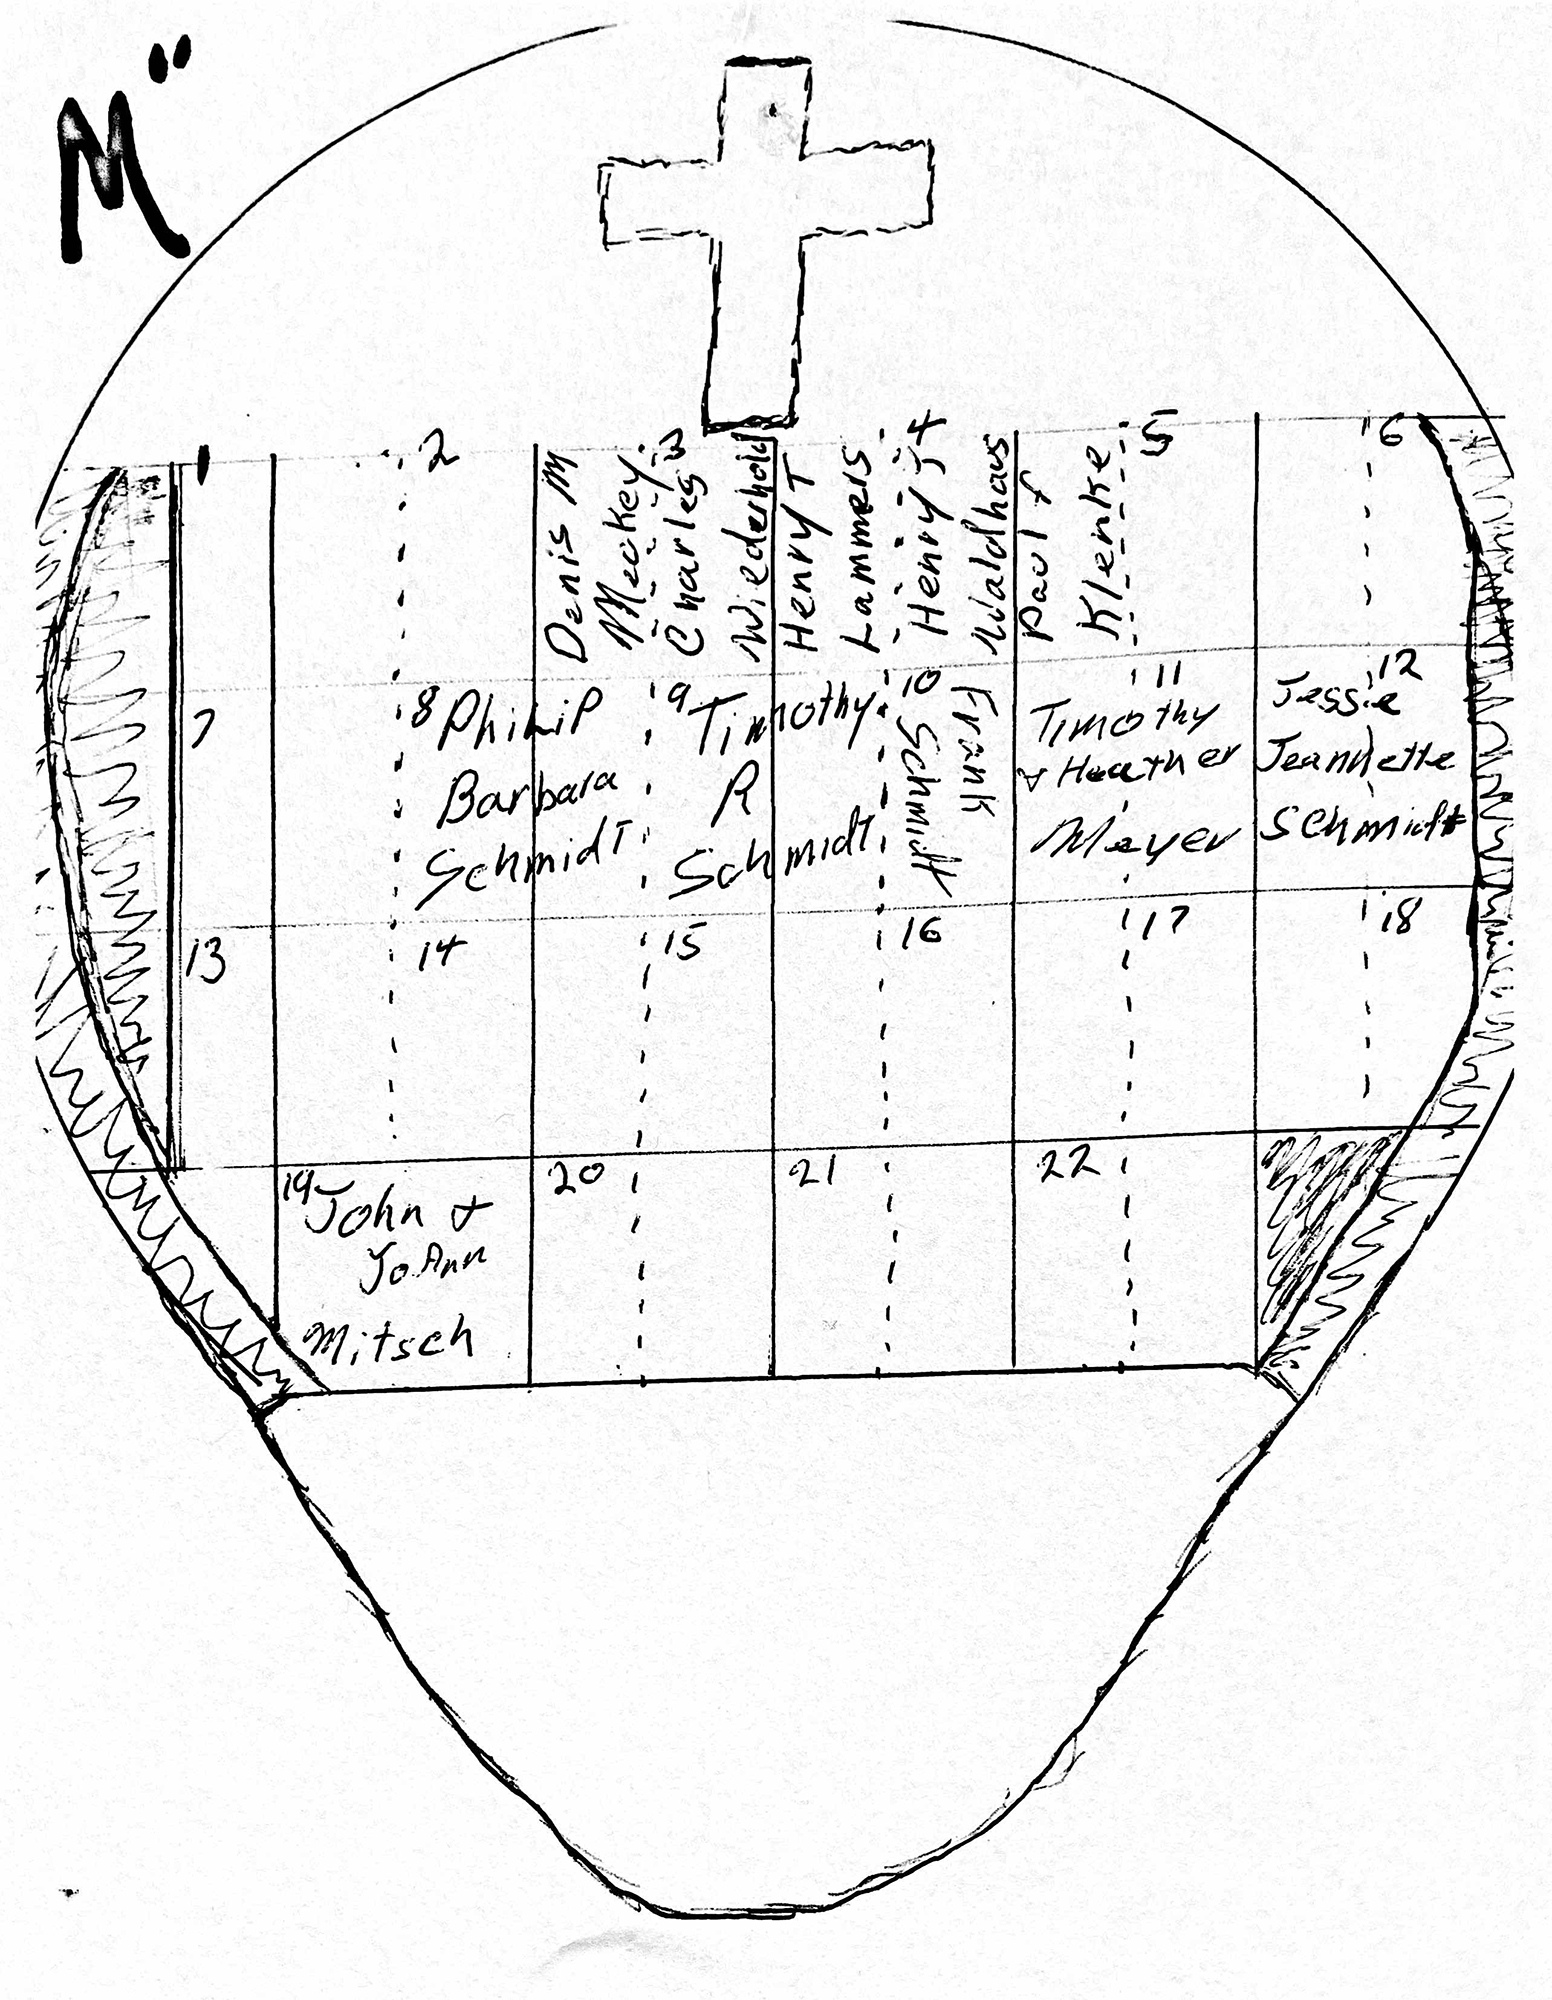 M"
1
2
3
4
5
6
Denis M
Meckey
Charles
Wiederhold
Henry T
Lammers
Henry J
Waldhaus
Paul f
Klenke
7
8
Philip
Barbara
Schmidt
9
Timothy
R
Schmidt
10
Frank
Schmidt
11
Timothy
& Heather
Meyer
12
Jessie
Jeannette
Schmidt
13
14
15
16
17
18
19
John +
JoAnn
Mitsch
20
21
22